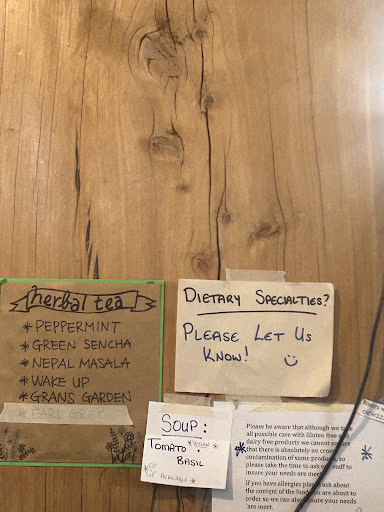 herbal tea
* PEPPERMINT
* GREEN SENCHA
* NEPAL MASALA
* WAKE UP
* GRANS GARDEN
* EARL GREY
DIETARY SPECIALTIES?
PLEASE LET US
KNOW!
SOUP:
TOMATO * VEGAN *
+
BASIL
* GF
AVAILABLE *
Please be aware that although we
all possible care with Gluten free and
dairy free products we cannot
that there is absolutely no cross
contamination of some products, so
please take the time to ask staff to
insure your needs are meet.
If you have allergies please ask about
the content of the food you are about to
order so we can also insure your needs
are meet.